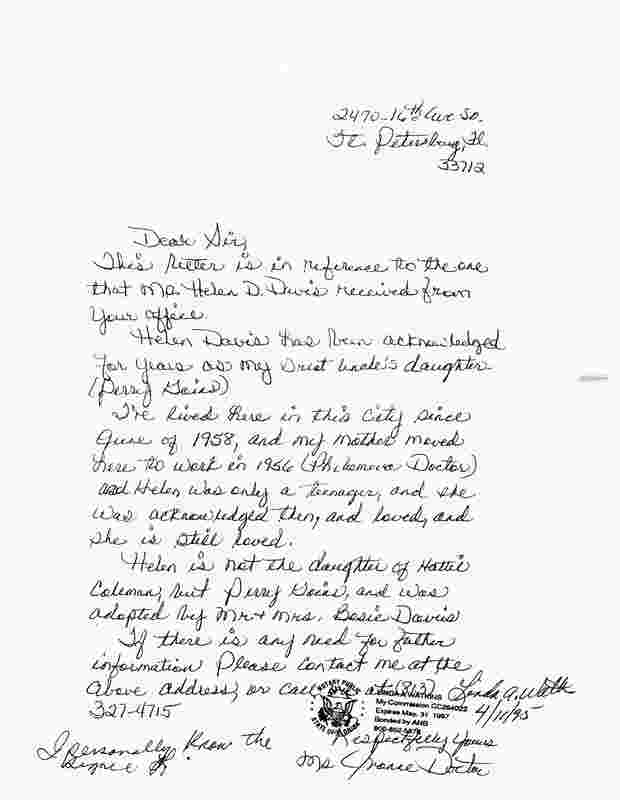 2470-16th Ave So.
St. Petersburg, Fl.
33712
Dear Sir,
This letter is in reference to the one
that Ms. Helen D. Davis received from
Your office.
Helen Davis has been acknowledged
for years as my Great Uncle's daughter
(Perry Goins)
I've lived here in this City since
June of 1958, and my mother moved
here to work in 1956 (Philomena Doctor)
and Helen was only a teenager, and she
was acknowledged then, and loved, and
she is still loved.
Helen is not the daughter of Hattie
Coleman, but Perry Goins, and was
adopted by Mr + Mrs. Bosie Davis
If there is any need for futher
information Please contact me at the
above address, or call me at (813)
327-4715
NOTARY PUBLIC
STATE OF FLORIDA
LINDA A WATKINS
My Commission CC284023
Expires May. 31 1997
Bonded by ANB
800-852-5878
Linda A. Watk
4/11/95
I personally know the
Respectfully Yours
Ms Yvonne Doctor